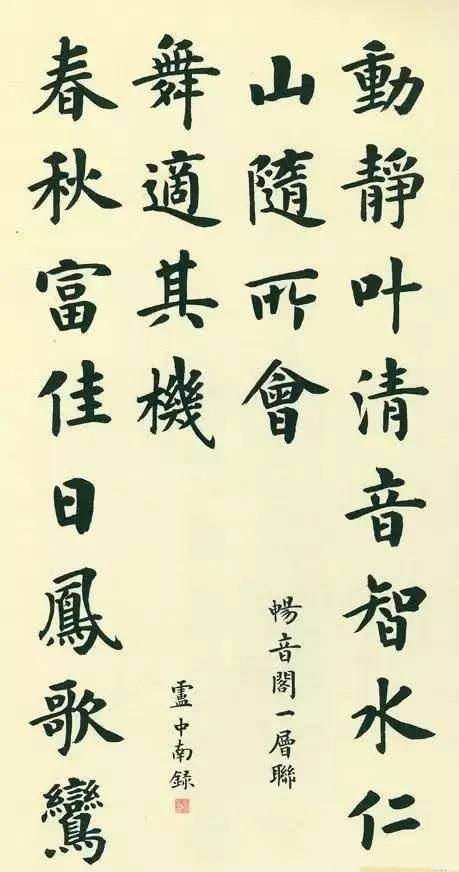 動靜叶清音智水仁
山隨所會
春秋富佳日鳳歌鸞
舞適其機
暢音閣一層聯
盧中南録